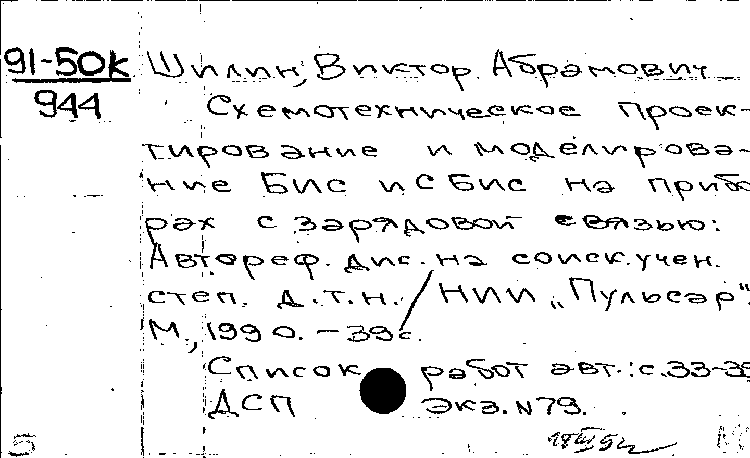 91-50к Шилин, Виктор Абрамович
944 Схемотехническое проек-
тирование и моделирова-
ние БИС и СБИС на прибо
рах с зарядовой связью:
Автореф. дис. на соиск. учен.
степ. д.т.н. / НИИ „Пульсар".
М., 1990. – 39 с.
Список работ авт.: с. 33-39
ДСП Экз. N 79.
5